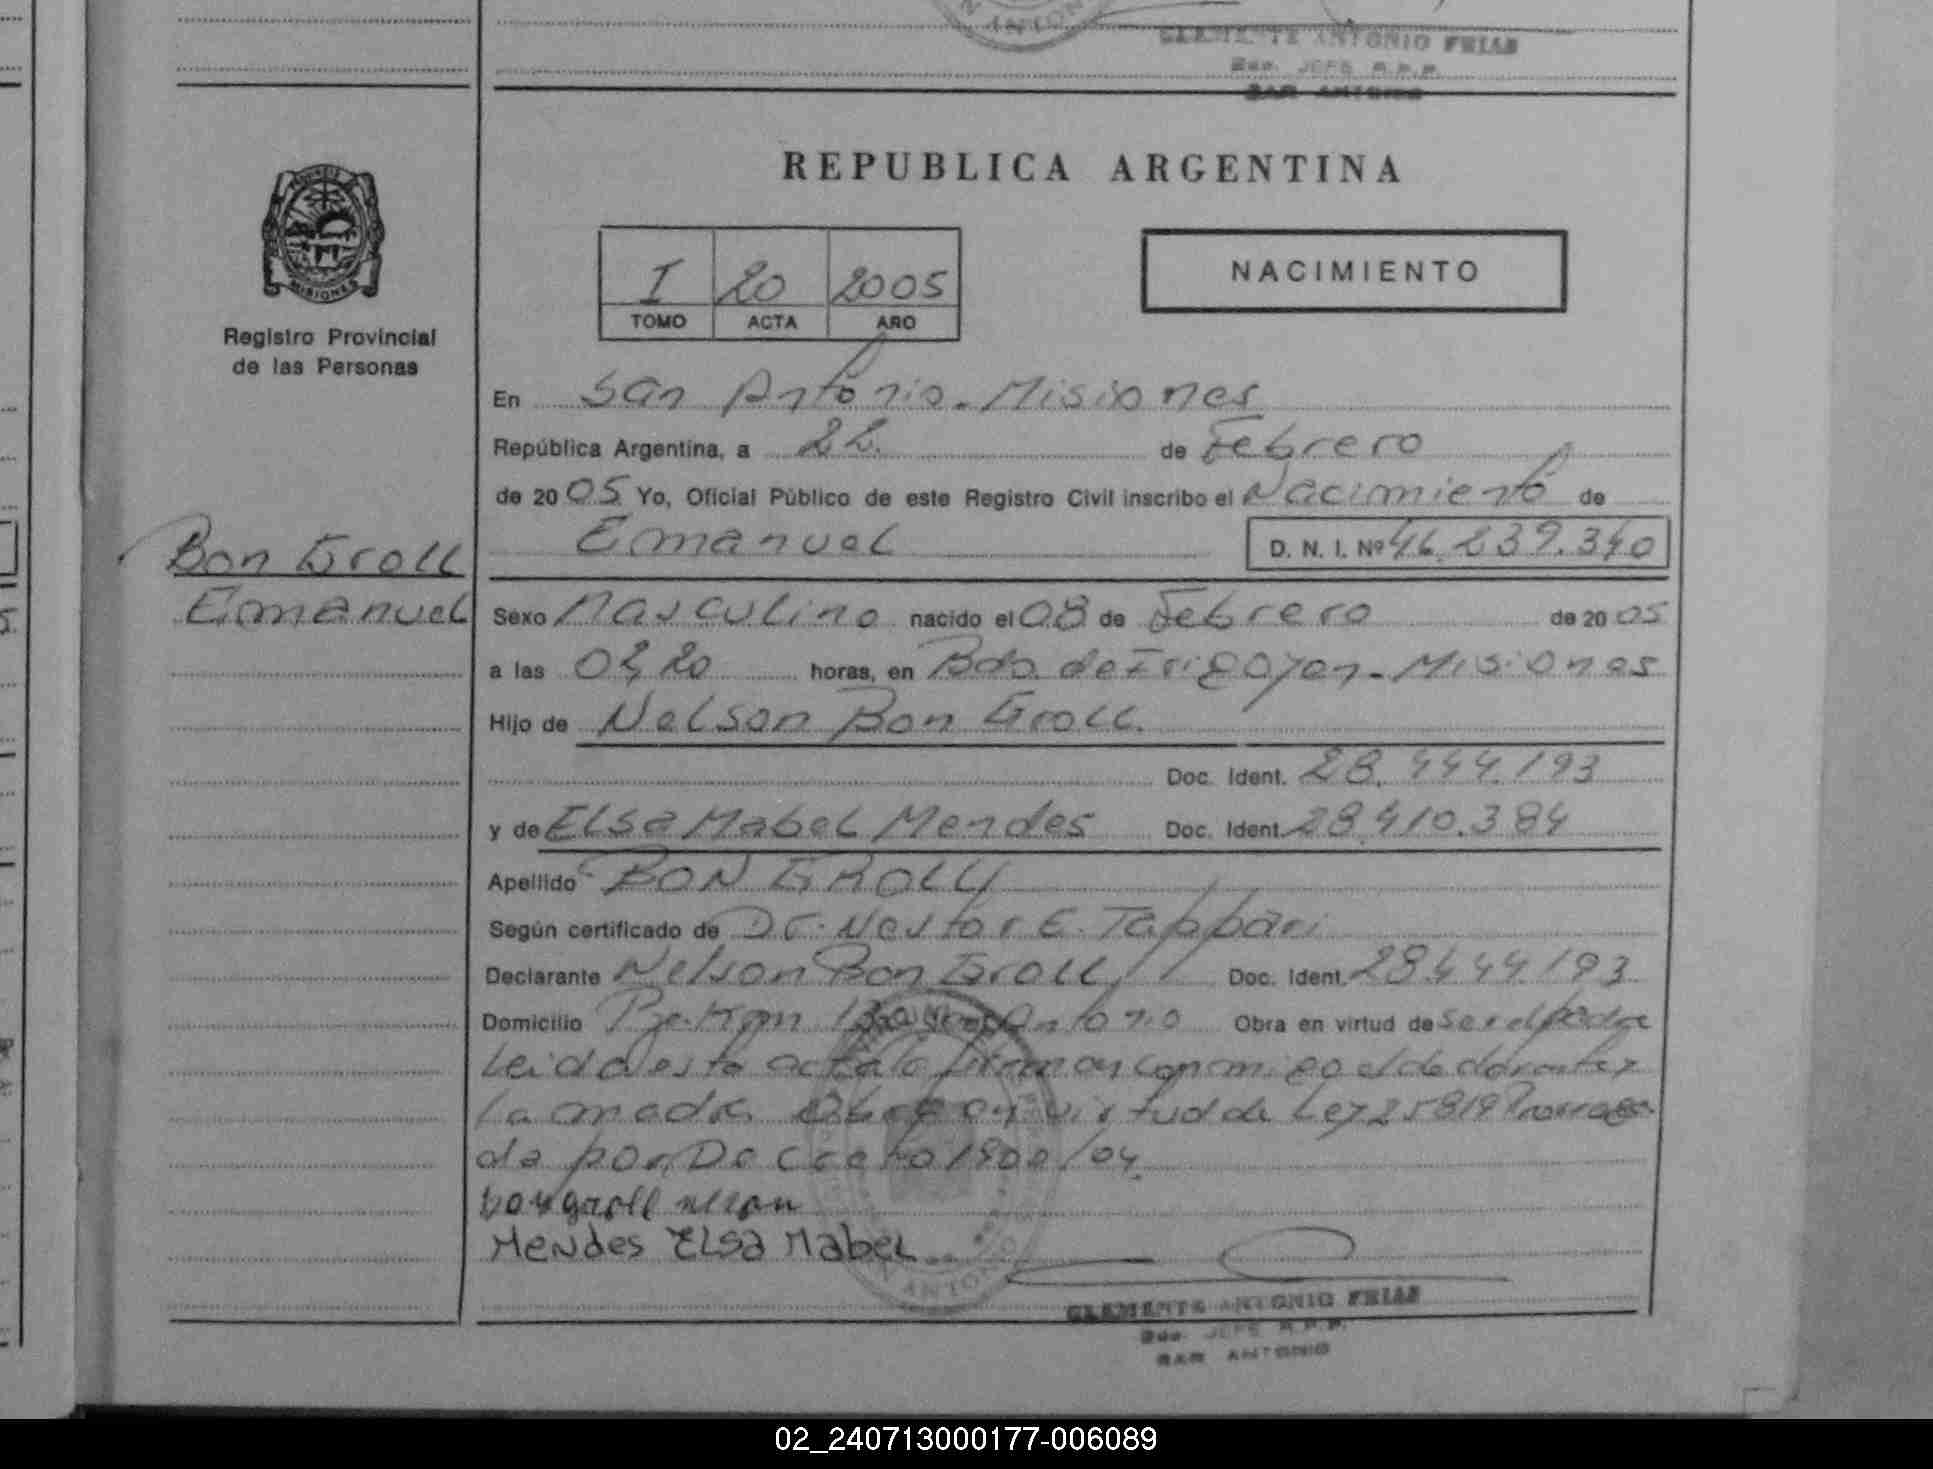 ANTONIO
CLEMENTE ANTONIO FRIAS
JEFE R.P.P.
SAN ANTONIO
PROVINCIA DE
MISIONES
Registro Provincial
de las Personas
REPUBLICA ARGENTINA
I 20 2005
TOMO ACTA AÑO
NACIMIENTO
En San Antonio - Misiones
República Argentina, a 22. de Febrero
de 2005 Yo, Oficial Público de este Registro Civil inscribo el Nacimiento de
Emanuel D. N. I. Nº 46.239.340
Bon Groll
Emanuel
Sexo Masculino nacido el 08 de Febrero de 2005
a las 02,20 horas, en Bdo. de Irigoyen - Misiones
Hijo de Nelson Bon Groll.
Doc. Ident. 28.444.193
y de Elsa Mabel Mendes Doc. Ident. 28.410.384
Apellido BON GROLL
Según certificado de Dr. Nestor E. Tappari
Declarante Nelson Bon Groll Doc. Ident. 28.444.193
Domicilio San Antonio Obra en virtud de ser el padre
Leida esta acta la firman conmigo el declarante y
la madre Obra en virtud de Ley 25819 Prorroga
da por Decreto 1900/04.
bon groll nelson
Mendes Elsa Mabel
CLEMENTE ANTONIO FRIAS
JEFE R.P.P.
SAN ANTONIO
02_240713000177-006089